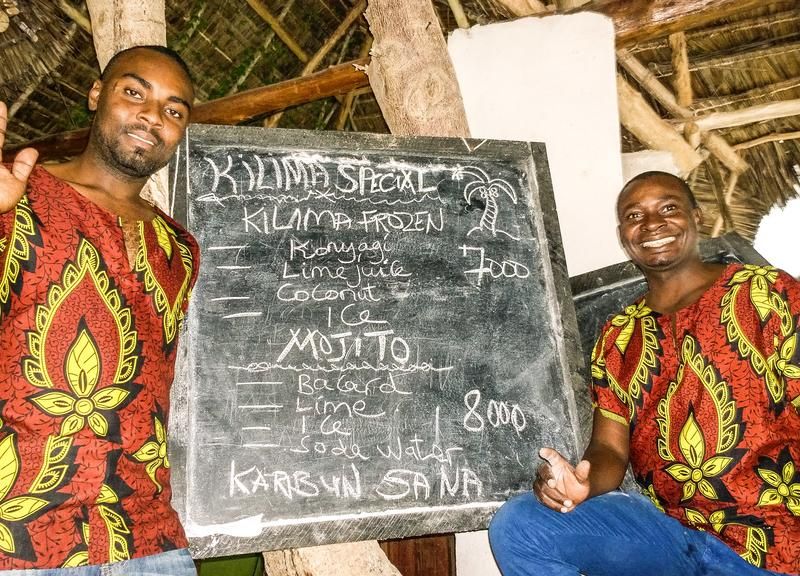 KILIMA SPECIAL
KILIMA FROZEN
Konyagi
Lime juice 7000
Coconut
Ice
MOJITO
Bacard
Lime
Ice 8000
Soda Water
KARIBUN SANA